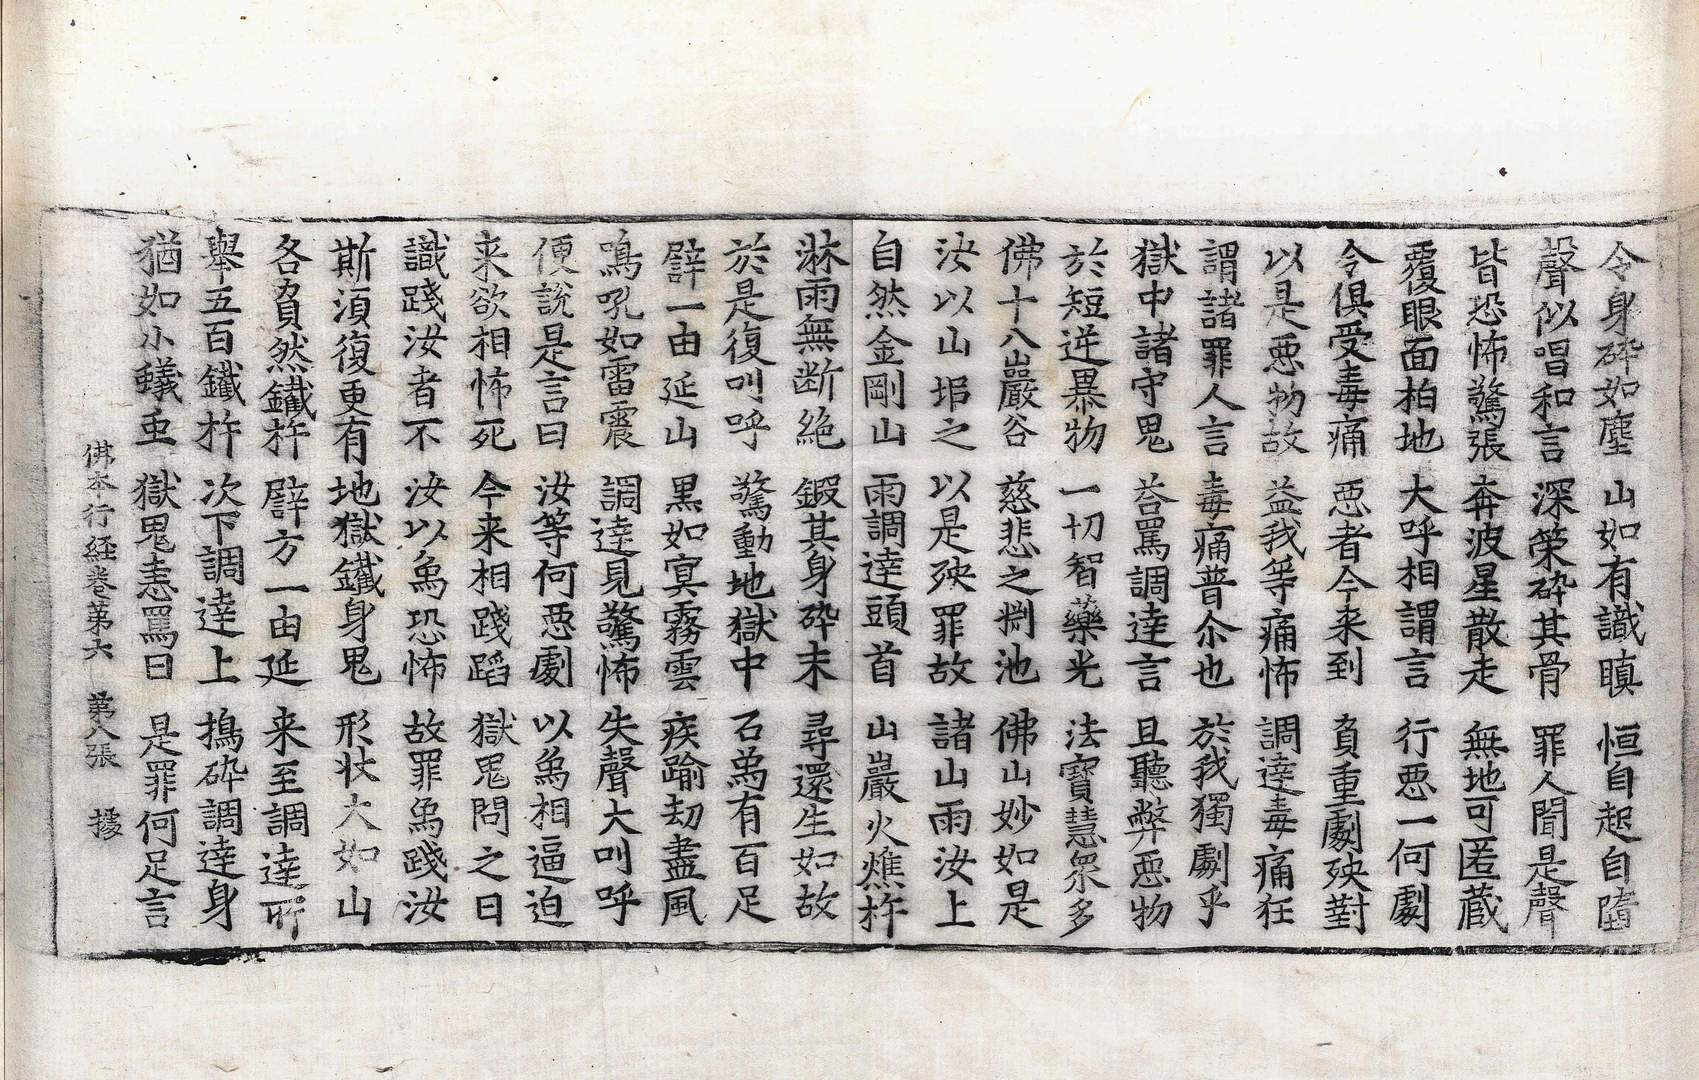 令身碎如塵 山如有識瞋 恒自起自墮
聲似唱和言 深榮碎其骨 罪人聞是聲
皆恐怖驚張 奔波星散走 無地可匿蔵
覆眼面拍地 大呼相謂言 行悪一何劇
令俱受毒痛 悪者今来到 負重劇殃對
以是悪物故 益我等痛怖 調達毒痛狂
謂諸罪人言 毒痛普尒也 於我獨劇乎
獄中諸守鬼 荅罵調達言 且聽弊悪物
於短逆暴物 一切智藥光 法寶慧衆多
佛十八巖谷 慈悲之捌池 佛山妙如是
汝以山埳之 以是殃罪故 諸山雨汝上
自然金剛山 雨調達頭首 山巖火燋杵
淋雨無断絶 鍜其身碎末 尋還生如故
於是復叫呼 驚動地獄中 石為有百足
辟一由延山 黒如寞霧雲 疾踰劫盡風
鳴吼如雷震 調達見驚怖 失聲大叫呼
便說是言曰 汝等何悪劇 以為相逼迫
来欲相怖死 今来相踐蹈 獄鬼問之曰
識踐汝者不 汝以為恐怖 故罪為踐汝
斯湏復更有 地獄鐵身鬼 形状大如山
各負然鐵杵 辟方一由延 来至調達所
舉五百鐵杵 次下調達上 搗碎調達身
猶如小蟻虫 獄鬼恚罵曰 是罪何足言
佛本行経卷第六 第八張 據